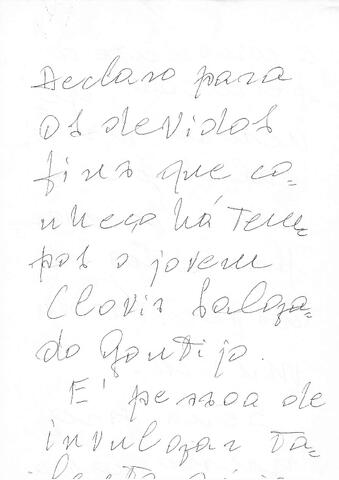 Declaro para
os devidos
fins que co=
nheço há tem=
pos o jovem
Clovis Salga=
do Gontijo.
E' pessoa de
invulgar ta=